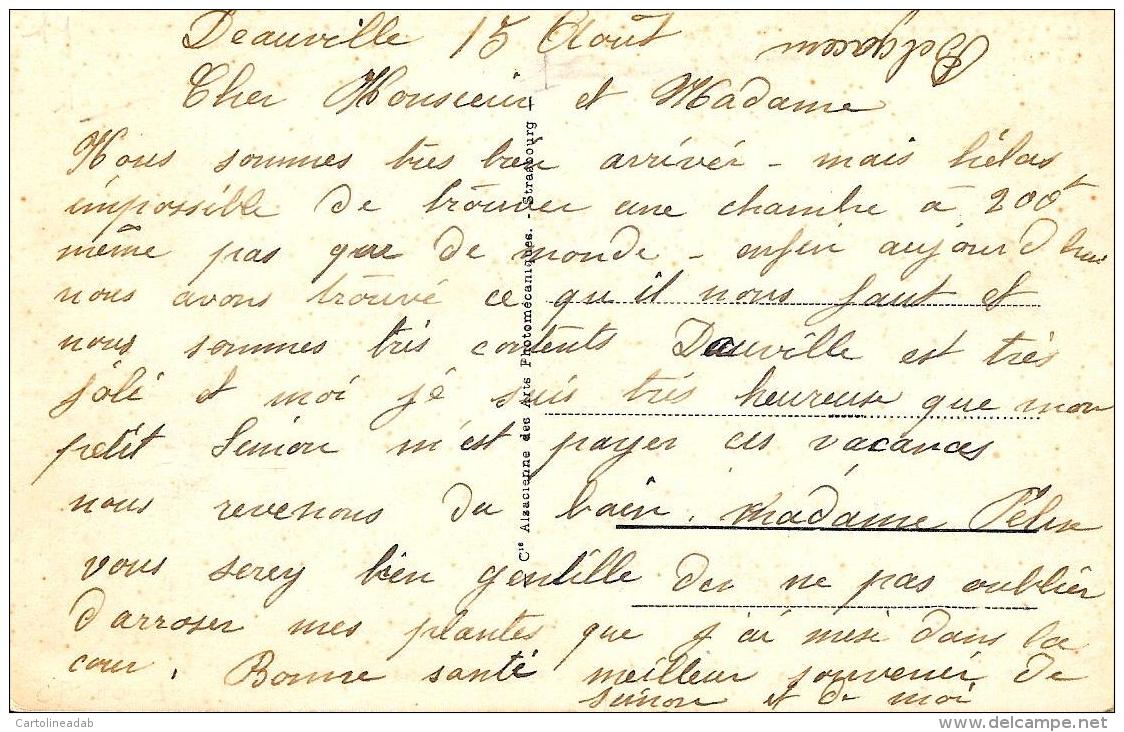 Deauville 15 Août
Cher Monsieur et Madame
Nous sommes très bien arrivér - mais hélas
impossible de trouver une chambre à 200f
même pas que de monde - enfin aujourd hui
nous avons trouvé ce qu il nous faut et
nous sommes très contents Deauville est très
joli et moi je suis très heureuse que mon
petit Simon m'est payer ces vacances
nous revenons du bain. Madame Félix
vous serey bien gentille de ne pas oublier
d'arroser mes plantes que j'ai mise dans la
cour. Bonne santé meilleur souvenir de
Simon et de moi
Cie Alsacienne des Arts Photomécaniques. - Strasbourg
Cartolineadab
www.delcampe.net